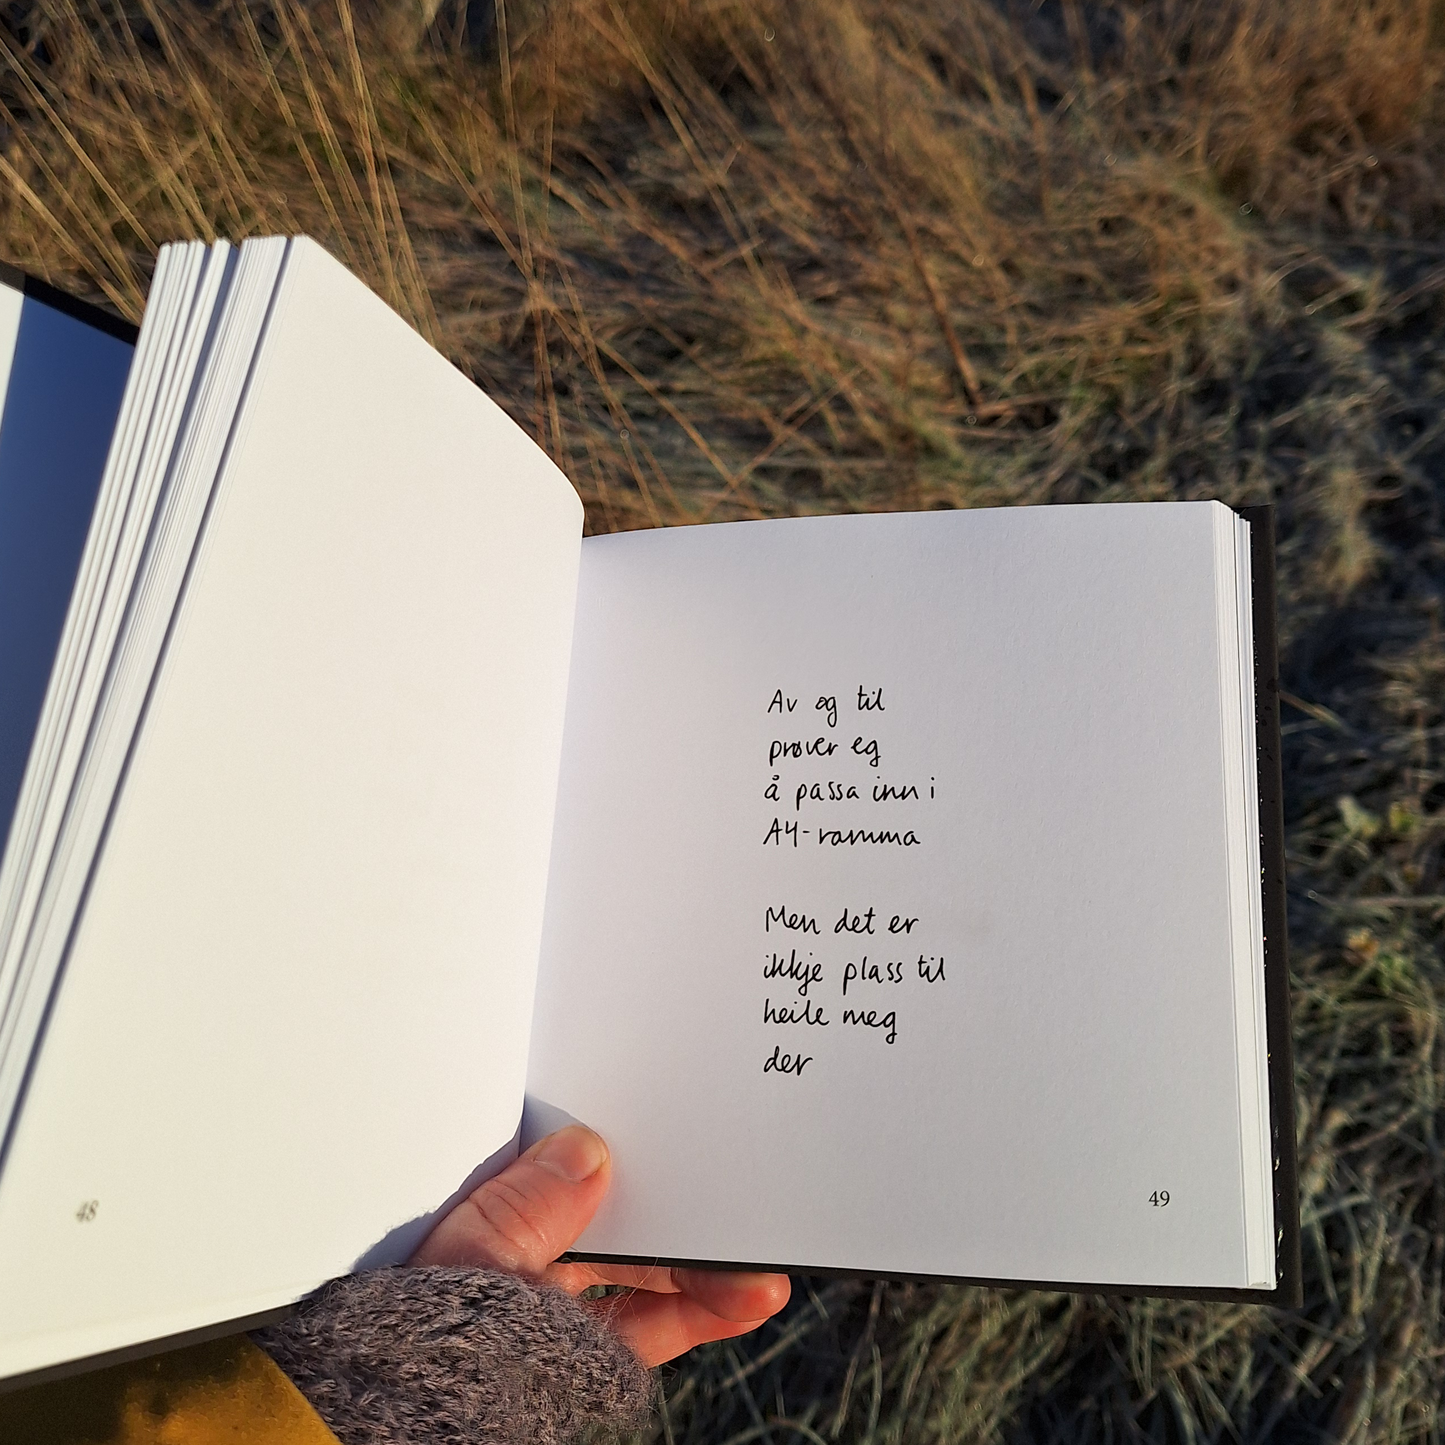 Av og til
prøver eg
å passa inn i
A4-ramma
Men det er
ikkje plass til
heile meg
der
48
49